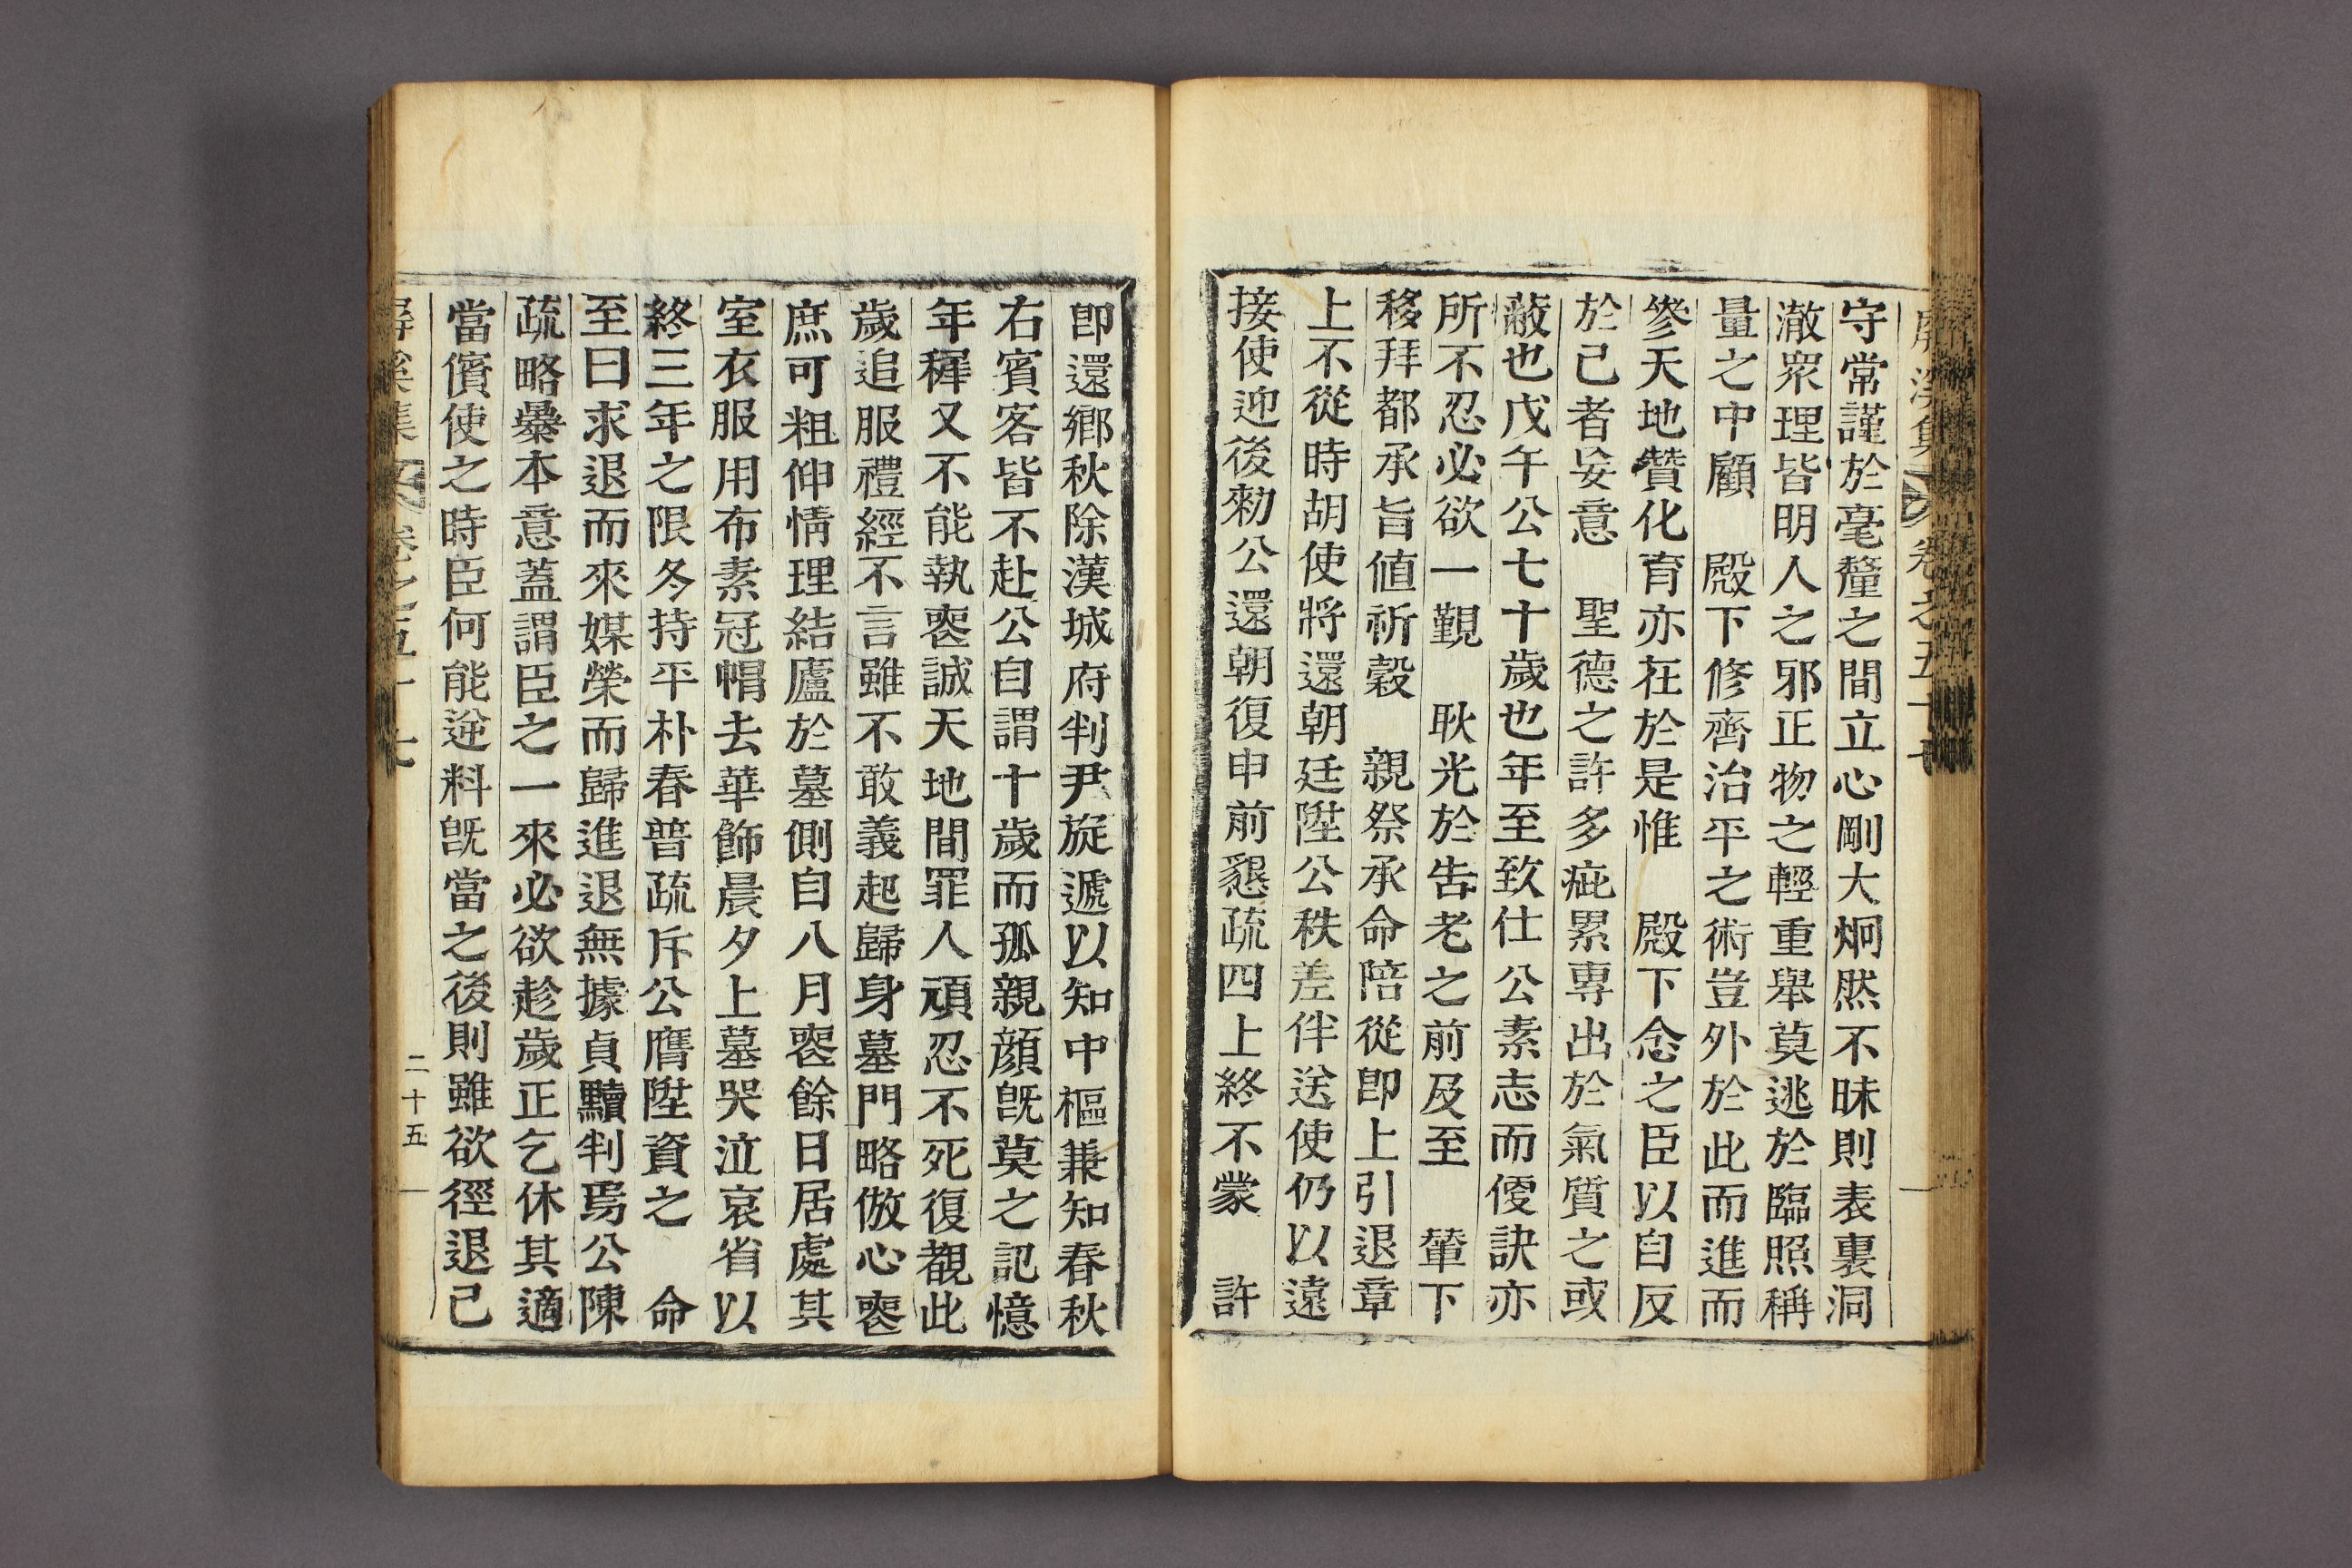 屏溪集 卷之五十七
守常謹於毫釐之間立心剛大炯然不昧則表裏洞
澈衆理皆明人之邪正物之輕重舉莫逃於臨照稱
量之中顧 殿下修齊治平之術豈外於此而進而
參天地贊化育亦在於是惟 殿下念之臣以自反
於己者妄意 聖德之許多疵累專出於氣質之或
蔽也戊午公七十歲也年至致仕公素志而優訣亦
所不忍必欲一覲 耿光於告老之前及至 輦下
移拜都承旨値祈穀 親祭承命陪從卽上引退章
上不從時胡使將還朝廷陞公秩差伴送使仍以遠
接使迎後勑公還朝復申前懇疏四上終不蒙 許
卽還鄉秋除漢城府判尹旋遞以知中樞兼知春秋
右賓客皆不赴公自謂十歲而孤親顔旣莫之記憶
年穉又不能執喪誠天地間罪人頑忍不死復覩此
歲追服禮經不言雖不敢義起歸身墓門略倣心喪
庶可粗伸情理結廬於墓側自八月喪餘日居處其
室衣服用布素冠帽去華飾晨夕上墓哭泣哀省以
終三年之限冬持平朴春普疏斥公膺陞資之 命
至曰求退而來媒榮而歸進退無據貞黷判焉公陳
疏略曓本意蓋謂臣之一來必欲趁歲正乞休其適
當儐使之時臣何能逆料旣當之後則雖欲徑退已
屏溪集 卷之五十七
二十五